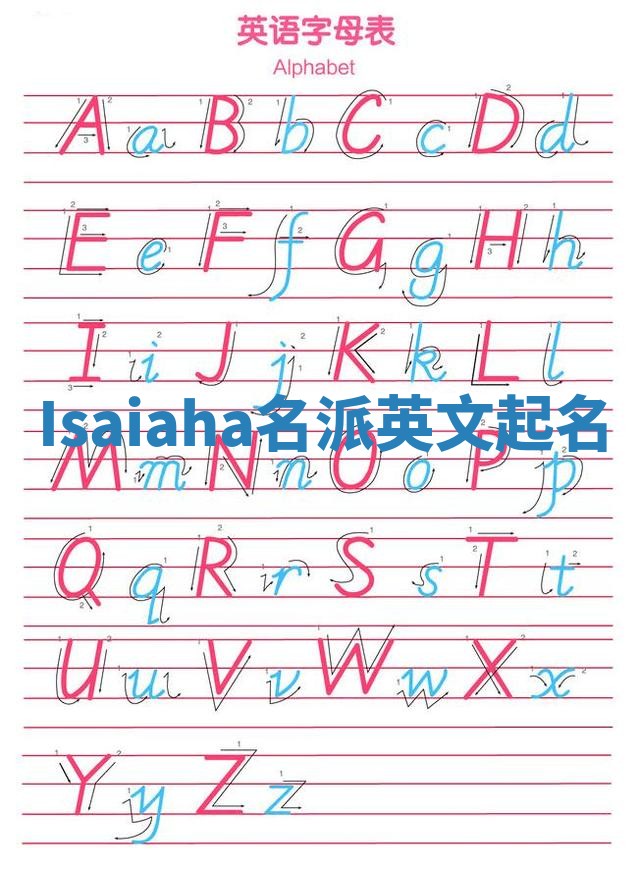 英语字母表
Alphabet
A a B b C c D d
E e F f G g H h
I i J j K k L l
Isaiaha名派英文起名
M m N n O o P p
Q q R r S s T t
U u V v W w X x
Y y Z z